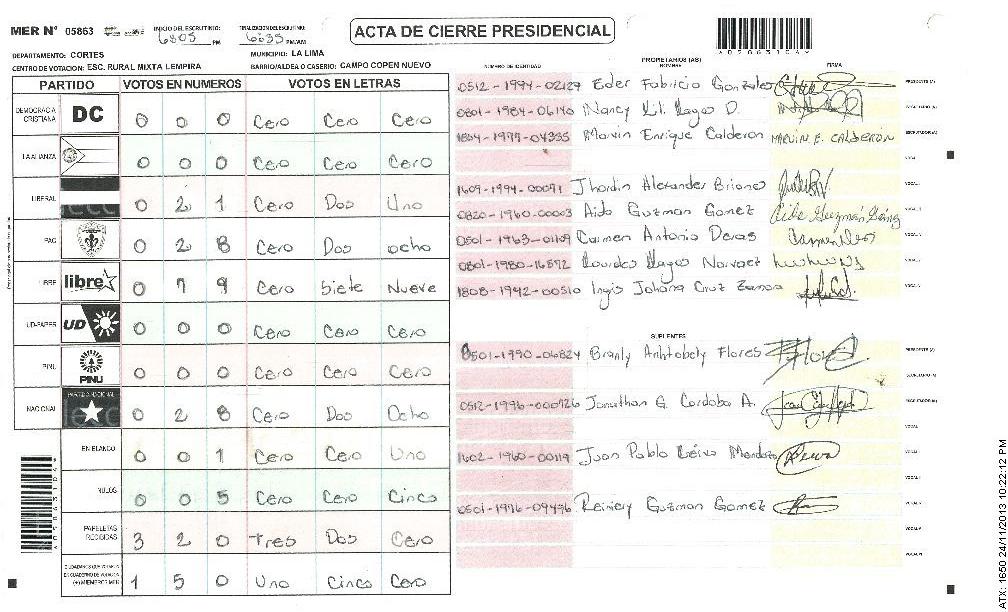 MER N° 05863
INICIO DEL ESCRUTINIO: 6:05 PM
FINALIZACION DEL ESCRUTINIO: 6:35 PM/AM
ACTA DE CIERRE PRESIDENCIAL
DEPARTAMENTO: CORTES
MUNICIPIO: LA LIMA
CENTRO DE VOTACION: ESC. RURAL MIXTA LEMPIRA
BARRIO/ALDEA O CASERIO: CAMPO COPEN NUEVO
PARTIDO VOTOS EN NUMEROS VOTOS EN LETRAS
DEMOCRACIA CRISTIANA DC 0 0 0 Cero Cero Cero
LA ALIANZA 0 0 0 Cero Cero Cero
LIBERAL 0 2 1 Cero Dos Uno
PAC 0 2 8 Cero Dos ocho
LIBRE libre 0 7 9 Cero Siete Nueve
UD-FAPER UD 0 0 0 Cero Cero Cero
PINU PINU 0 0 0 Cero Cero Cero
NACIONAL PARTIDO NACIONAL 0 2 8 Cero Dos Ocho
EN BLANCO 0 0 1 Cero Cero Uno
NULOS 0 0 5 Cero Cero Cinco
PAPELETAS RECIBIDAS 3 2 0 Tres Dos Cero
CIUDADANOS QUE VOTARON EN CUADERNO DE VOTACION (+) MIEMBROS MER 1 5 0 Uno Cinco Cero
PROPIETARIOS (AS)
NUMERO DE IDENTIDAD NOMBRE FIRMA
0512-1994-02129 Eder Fabricio Gonzales PRESIDENTE (A)
0801-1984-06140 Nancy Lil. Llagos O. SECRETARIO (A)
1804-1977-04355 Marvin Enrique Calderon MARVIN E. CALDERON ESCRUTADOR (A)
VOCAL I
1609-1994-00091 Jhordin Alexander Briones
0820-1960-00003 Aida Guzman Gomez Aida Guzmán Gómez
0501-1963-01109 Carmen Antonio Deras
0801-1980-16872 Lourdes Llagos Narvaez
1808-1942-00510 Johana Cruz
SUPLENTES
0501-1990-06824 Flores PRESIDENTE (A)
SECRETARIO (A)
0512-1996-000726 Jonathan G. Cordoba A. ESCRUTADOR (A)
1602-1960-00119 Juan Pablo Mendoza
0501-1976-09496 Reiniery Guzman Gomez
ATX: 1650 24/11/2013 10:22:12 PM